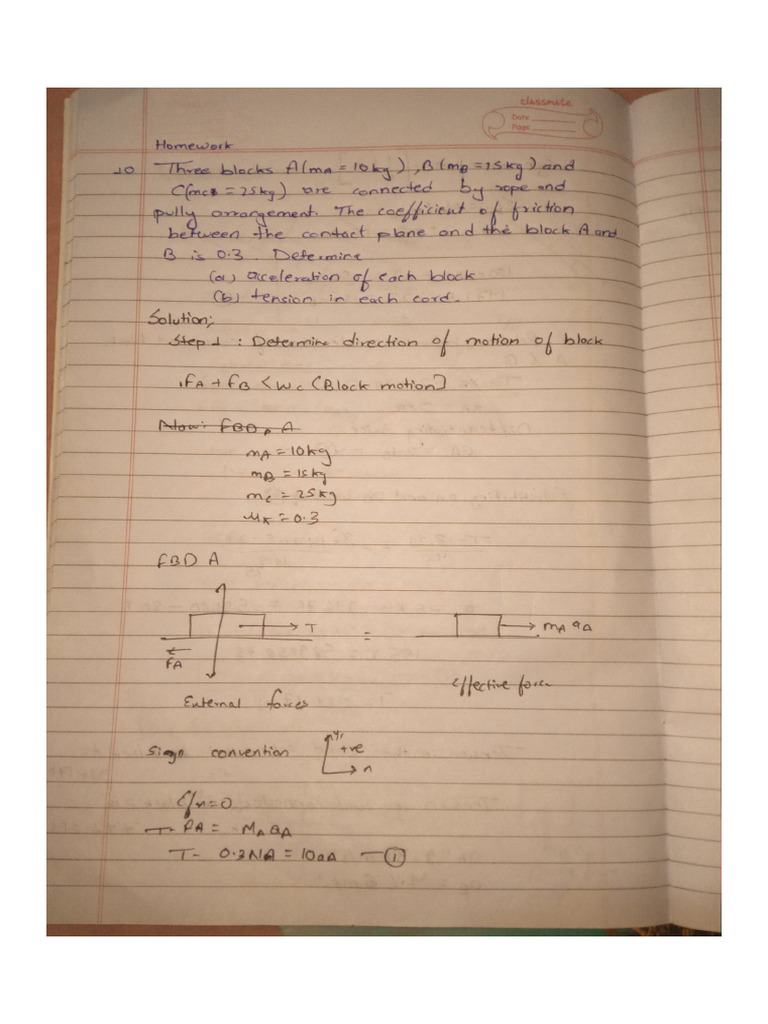 classmate
Date
Page
Homework
10 Three blocks A(mA = 10kg), B(mB = 15kg) and
C(mc = 25kg) are connected by rope and
pully arrangement. The coefficient of friction
between the contact plane and the block A and
B is 0.3. Determine
(a) acceleration of each block
(b) tension in each cord.
Solution;
Step 1 : Determine direction of motion of block
FA + FB < Wc (Block motion]
Now: FBD, A
mA = 10kg
mB = 15kg
mc = 25kg
μk = 0.3
FBD A
T = mA aA
FA
External forces
Effective force
Sign convention y +ve x
Σfx=0
T - FA = MA aA
T - 0.3NA = 10aA - ①